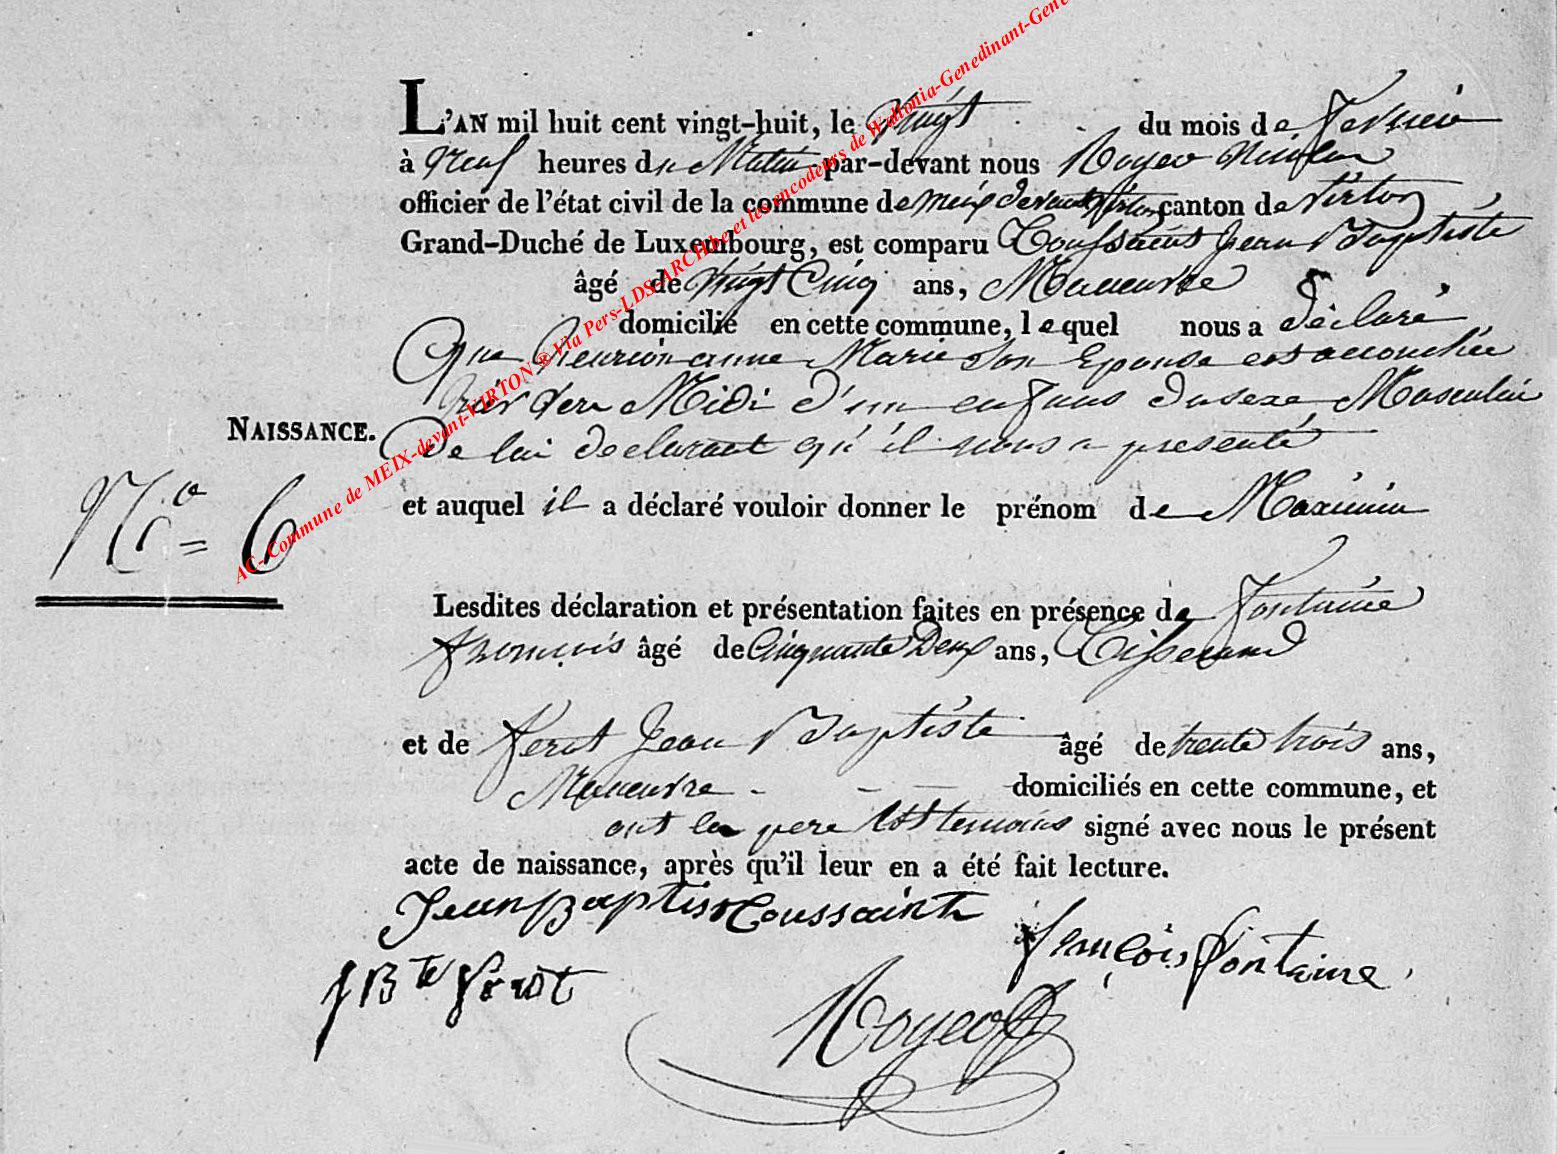 L'AN mil huit cent vingt-huit, le Vingt du mois de fevrier
à Neuf heures du Matin par-devant nous Royer
officier de l'état civil de la commune de meix devant Virton canton de Virton
Grand-Duché de Luxembourg, est comparu Toussaint Jean Baptiste
âgé de Vingt Cinq ans, Maneuvre
domicilié en cette commune, lequel nous a déclaré
Que anne Marie Son Epouse est accouchée
hier Midi d'un enfans du sexe Masculin
NAISSANCE.
De lui declarant qu'il nous a presenté
N.o = 6
et auquel il a déclaré vouloir donner le prénom de Maximin
Lesdites déclaration et présentation faites en présence de Fontaine
françois âgé de Cinquante Deux ans, Tisserand
et de feret Jean Baptiste âgé de trente trois ans,
Maneuvre - - - domiciliés en cette commune, et
ont le pere temoins signé avec nous le présent
acte de naissance, après qu'il leur en a été fait lecture.
Jean Baptiste Toussaint
françois fontaine
J Bte feret
Royer
AC- Commune de MEIX-devant-VIRTON ® Via Pers-LDS-ARCHbe et les encodeurs de Wallonia-Genedinant-Gene